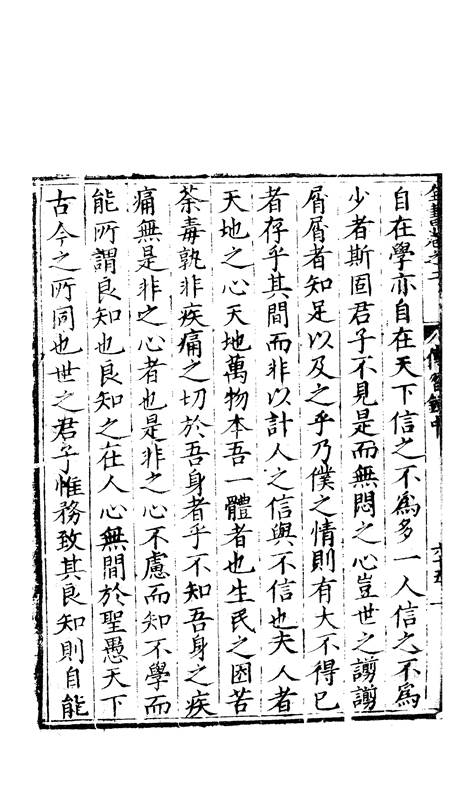 全書卷之二 傳習錄中 六十五
自在學亦自在天下信之不爲多一人信之不爲
少者斯固君子不見是而無悶之心豈世之謭謭
屑屑者知足以及之乎乃僕之情則有大不得已
者存乎其間而非以計人之信與不信也夫人者
天地之心天地萬物本吾一體者也生民之困苦
荼毒孰非疾痛之切於吾身者乎不知吾身之疾
痛無是非之心者也是非之心不慮而知不學而
能所謂良知也良知之在人心無間於聖愚天下
古今之所同也世之君子惟務致其良知則自能